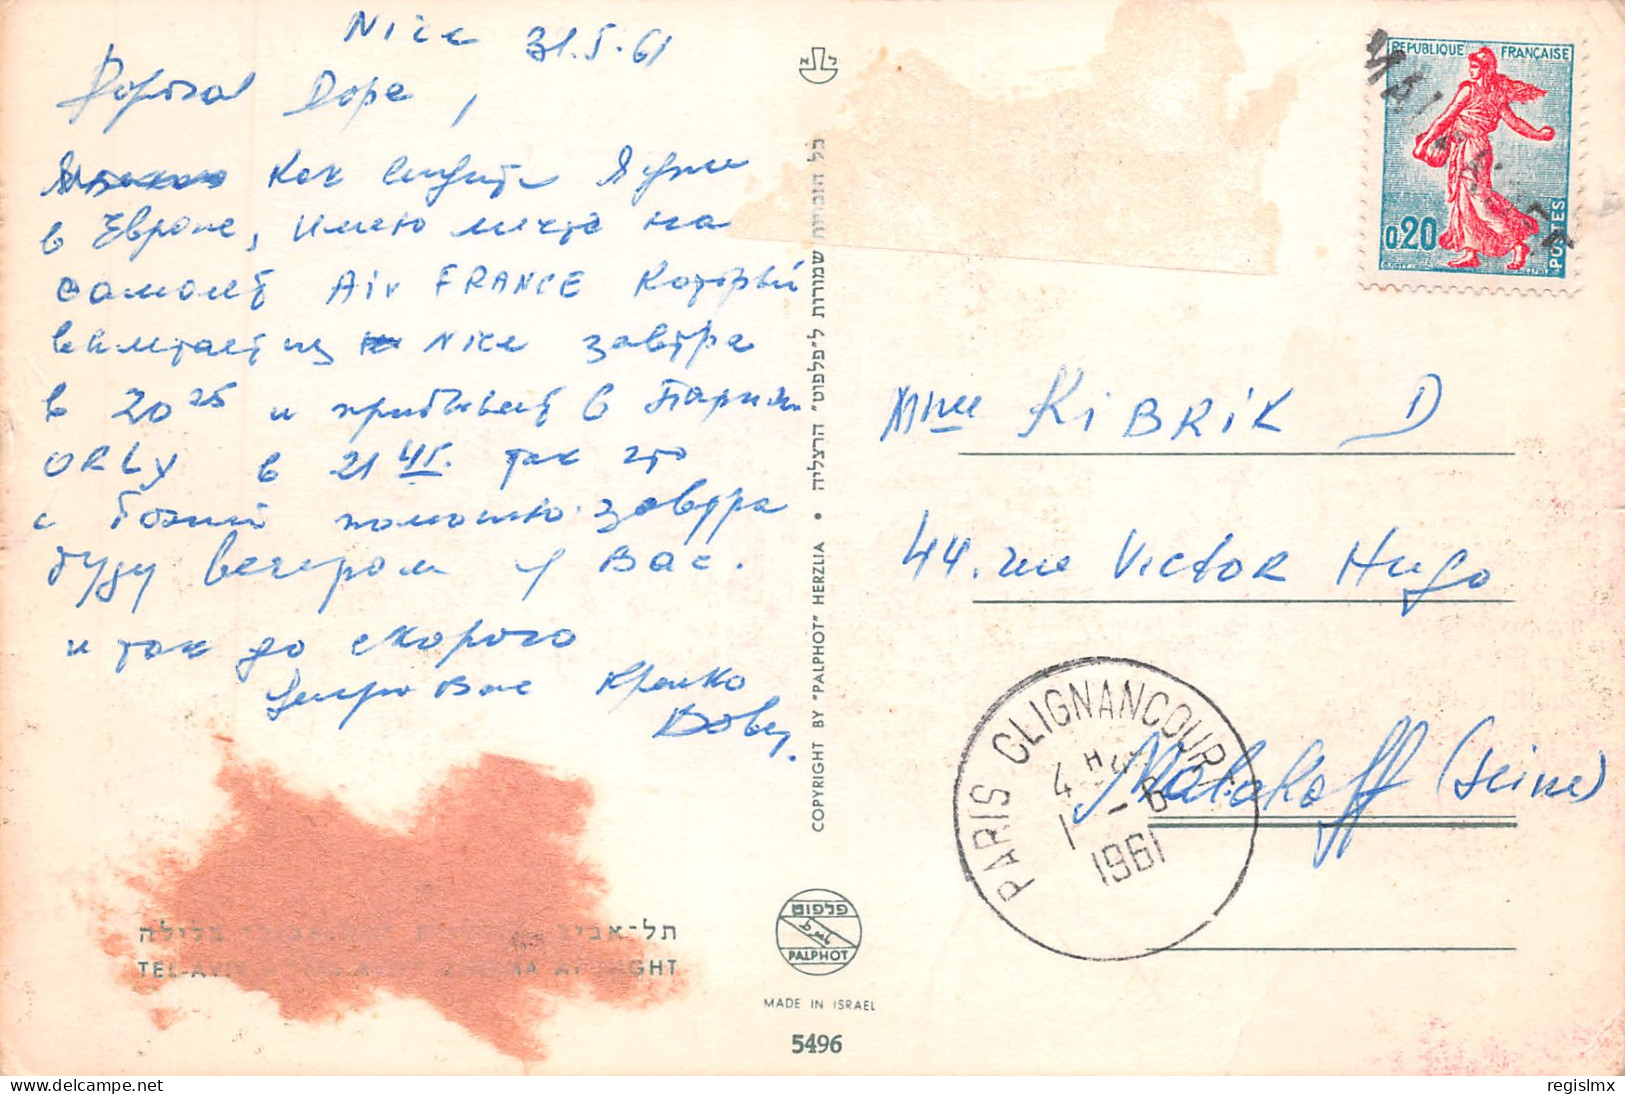 Nice 31.5.61
Дорогая Дора,
как видите я уже
в Европе, имею место на
самолет Air FRANCE который
вылетает из Nice завтра
в 20 25 и прибывает в Париж
ORLY в 21 45. так что
с Божий помощью завтра
буду вечером у Вас.
и так до скорого
Целую Вас крепко
Вова.
כל הזכויות שמורות ל"פלפוט" הרצליה • COPYRIGHT BY "PALPHOT" HERZLIA
תל-אביב בלילה
TEL-AVIV CINEMA AT NIGHT
פלפוט
PALPHOT
MADE IN ISRAEL
5496
REPUBLIQUE FRANÇAISE
0,20
POSTES
Mme KiBRiK D
44. rue Victor Hugo
Malakoff (Seine)
PARIS CLIGNANCOURT
1 - 6
1961
regislmx